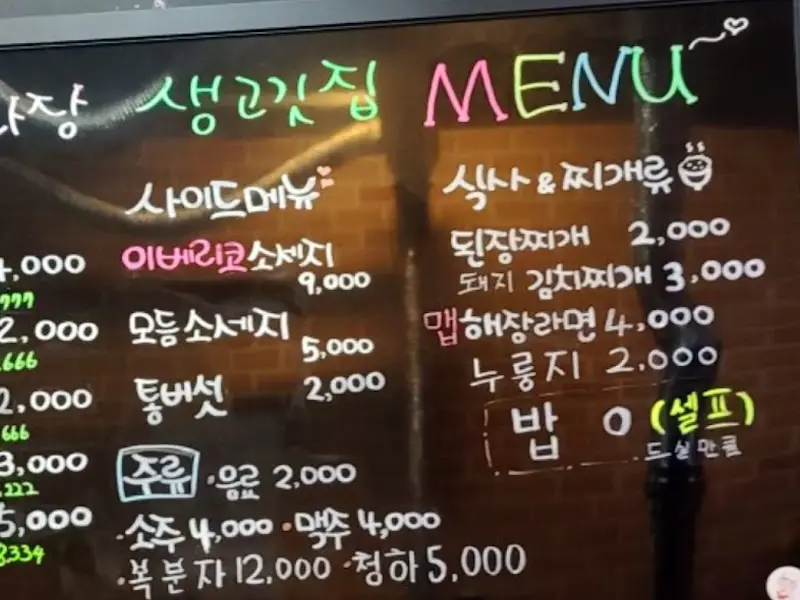 생고깃집 MENU
사이드메뉴
이베리코소세지
9,000
모듬소세지
5,000
통버섯 2,000
주류 ·음료 2,000
·소주 4,000 ·맥주 4,000
·복분자 12,000 ·청하 5,000
식사 & 찌개류
된장찌개 2,000
돼지 김치찌개 3,000
맵해장라면 4,000
누룽지 2,000
밥 0 (셀프)
드실만큼
,000
777
2,000
.666
2,000
666
3,000
.222
5,000
8.334